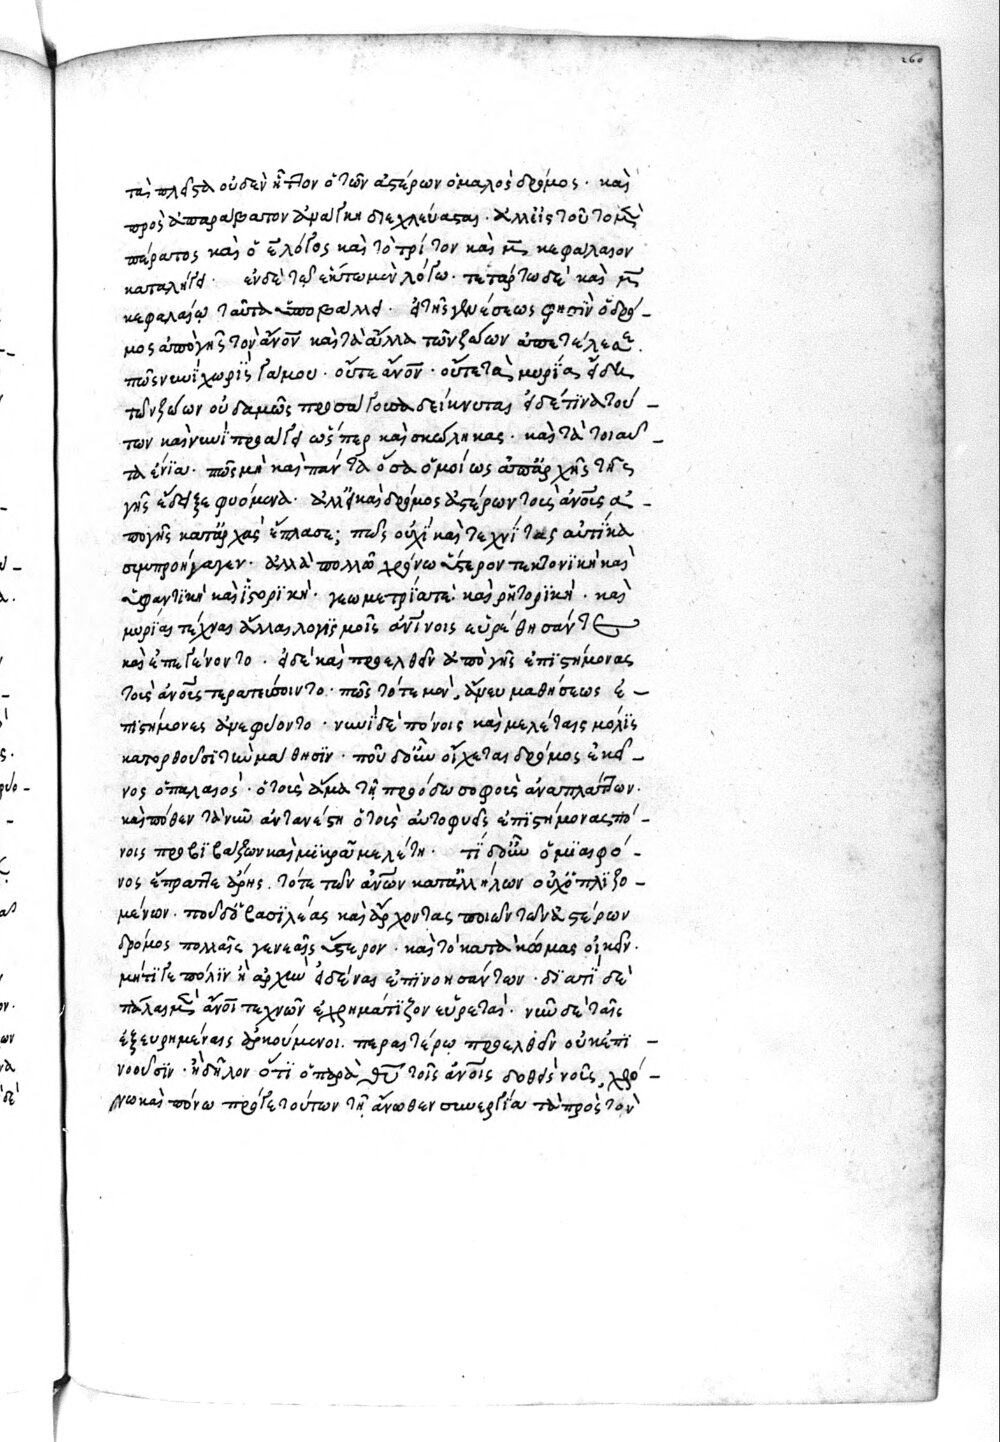 260
ται πλεῖστα οὐδὲν ἧττον ὁ τῶν ἀστέρων ὁμαλὸς δρόμος· καὶ
πρὸς ἀπαράβατον ἀνάγκην διεχλεύασται· ἀλλ' εἰς τοῦτο μὲν
πέρατος καὶ ὁ λόγος καὶ τὸ τρίτον καὶ κεφάλαιον
καταλήγει· ἐν δὲ τῷ ἕκτῳ μὲν λόγῳ· τετάρτῳ δὲ καὶ
κεφαλαίῳ ταῦτα ὑποβάλλει· εἰ τῆς γενέσεώς φησιν ὁ δρό-
μος ἀπὸ γῆς τὸν ἄνον καὶ τὰ ἄλλα τῶν ζώων ἀπετέλεσε·
πῶς νυνὶ χωρὶς γάμου· οὔτε ἄνον· οὔτε τὰ μυρία εἴδη
τῶν ζώων οὐδαμῶς προσάγοντα δείκνυται εἰ δέ τινα τού-
των καὶ νυνὶ προάγει ὥσπερ καὶ σκώληκας· καὶ τὰ τοιαῦ-
τα ἔνια· πῶς μὴ καὶ πάντα ὅσα ὁμοίως ἀπ' ἀρχῆς τῆς
γῆς ἔδειξε φυόμενα· ἀλλ' εἰ καὶ δρόμος ἀστέρων τοὺς ἀνους ἀ-
πὸ γῆς κατ' ἀρχὰς ἔπλασε; πῶς οὐχὶ καὶ τεχνίτας αὐτίκα
συμπροήγαγεν· ἀλλὰ πολλῷ χρόνῳ ὕστερον τεκτονικὴ καὶ
ὑφαντικὴ καὶ ἱστορική· γεωμετρία τε καὶ ῥητορική· καὶ
μυρίαι τέχναι ἄλλαι λογισμοῖς ἀνίνοις εὑρέθησάν τε
καὶ ἐπεγένοντο· εἰ δὲ καὶ προελθεῖν ἀπὸ γῆς ἐπιστήμονας
τοὺς ἀνους τερατεύσοιντο· πῶς τότε μὲν, ἄνευ μαθήσεως ἐ-
πιστήμονες ἀνεφύοντο· νυνὶ δὲ πόνοις καὶ μελέταις μόλις
κατορθοῦσι τὴν μάθησιν· ποῦ δ' οὖν οἴχεται δρόμος ἐκεῖ-
νος ὁ παλαιός· ὁ τοὺς ἅμα τῇ προόδῳ σοφοὺς ἀναπλάττων·
καὶ πόθεν τανῦν ἀντανέστη ὁ τοὺς αὐτοφυεῖς ἐπιστήμονας πό-
νοις προβιβάζων καὶ μακρᾷ μελέτῃ· τί δ' οὖν ὁ μιαιφό-
νος ἔπραττε ἄρης. τότε τῶν ἀνων κατ' ἀλλήλων οὐχ ὁπλιζο-
μένων· ποῦ δ' ὁ βασιλέας καὶ ἄρχοντας ποιῶν τῶν ἀστέρων
δρόμος πολλαῖς γενεαῖς ὕστερον· καὶ τὸ κατὰ κώμας οἰκεῖν·
μήτι γε πόλιν ἢ ἀρχὴν οὐδένας ἐπινοησάντων· διατί δὲ
πάλαι μὲν ἄνοι τεχνῶν ἐχρημάτιζον εὑρεταί· νῦν δὲ ταῖς
ἐξευρημέναις ἀρκούμενοι. περαιτέρῳ προελθεῖν οὐκ ἐπι-
νοοῦσιν· ἢ δῆλον ὅτι ὁ παρὰ θυ τοῖς ἀνοις δοθεὶς νοῦς, χρό-
νῳ καὶ πόνῳ πρό γε τούτων τῇ ἄνωθεν συνεργίᾳ τὰ πρὸς τὸν